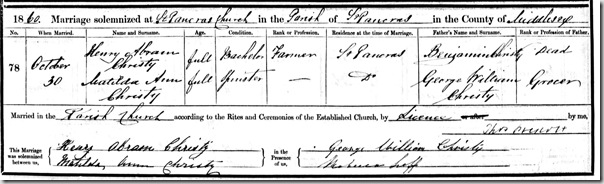 1860. Marriage solemnized at St Pancras Church in the Parish of St Pancras in the County of Middlesex
No. When Married. Name and Surname. Age. Condition. Rank or Profession. Residence at the time of Marriage. Father's Name and Surname. Rank or Profession of Father.
78 October 30 Henry Abram Christy full Bachelor Farmer St Pancras Benjamin Christy Dead
Matilda Ann Christy full Spinster — Do George William Christy Grocer
Married in the Parish Church according to the Rites and Ceremonies of the Established Church, by Licence or by me,
Thos
This Marriage was solemnized between us, Henry Abram Christy Matilda Ann Christy in the Presence of us, George William Christy